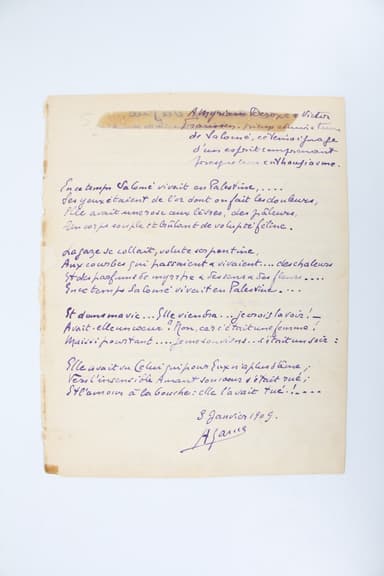 A Myriam Deroxe & Victor
Francen,
de Salomé, ce témoignage
d'un esprit comprenant
presque leur enthousiasme.
En ce temps Salomé vivait en Palestine, ....
Ses yeux étaient de l'or dont on fait les douleurs,
Elle avait une rose aux lèvres, des pâleurs,
Un corps souple et brûlant de volupté féline.
La gaze se collait, volute serpentine,
Aux courbes qui passaient & vivaient .... des chaleurs
Et des parfums de myrrhe & d'encens & des fleurs ....
En ce temps Salomé vivait en Palestine ....
Et dans ma vie ... Elle viendra ... je crois la voir ! —
Avait-elle un cœur ? Non, car c'était une femme !
Mais si pourtant .... Je me souviens ... c'était un soir :
Elle avait vu Celui qui pour Eux n'a plus d'âme ;
Vers l'insensible Amant son cœur s'était rué ;
Et l'amour à la bouche : elle l'avait tué ! ....
3 Janvier 1909.